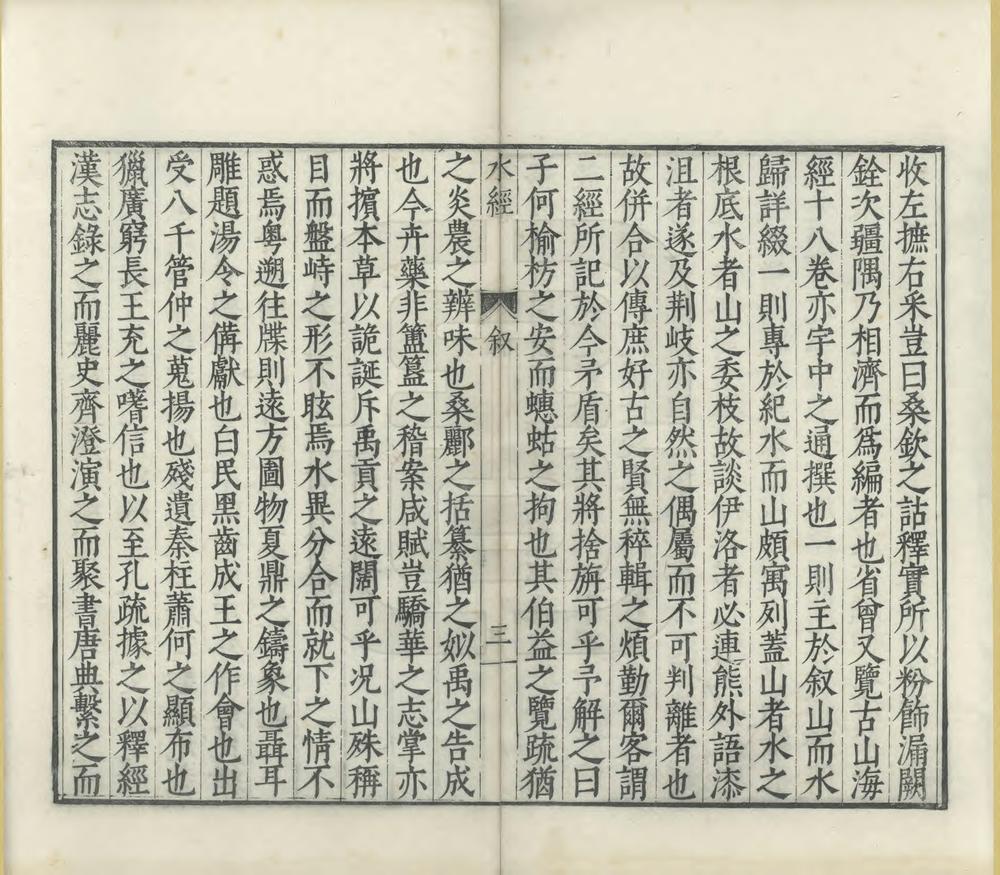 收左摭右采豈曰桑欽之詁釋實所以粉飾漏闕
銓次疆隅乃相濟而爲編者也省曾又覽古山海
經十八卷亦宇中之通撰也一則主於叙山而水
歸詳綴一則專於紀水而山頗寓列蓋山者水之
根底水者山之委枝故談伊洛者必連熊外語漆
沮者遂及荆岐亦自然之偶屬而不可判離者也
故併合以傳庶好古之賢無稡輯之煩勤爾客謂
二經所記於今矛盾矣其將捨旃可乎予解之曰
子何榆枋之安而蟪蛄之拘也其伯益之覽疏猶
水經
叙
三
之炎農之辨味也桑酈之括纂猶之姒禹之告成
也今卉藥非簠簋之稽案咸賦豈驕華之志掌亦
將擯本草以詭誕斥禹貢之遠闊可乎况山殊稱
目而盤峙之形不眩焉水異分合而就下之情不
惑焉粵遡往牒則遠方圖物夏鼎之鑄象也聶耳
雕題湯令之備獻也白民黑齒成王之作會也出
受八千管仲之蒐揚也殘遺秦柱蕭何之顯布也
獵廣窮長王充之嗜信也以至孔疏據之以釋經
漢志錄之而麗史齊澄演之而聚書唐典繫之而